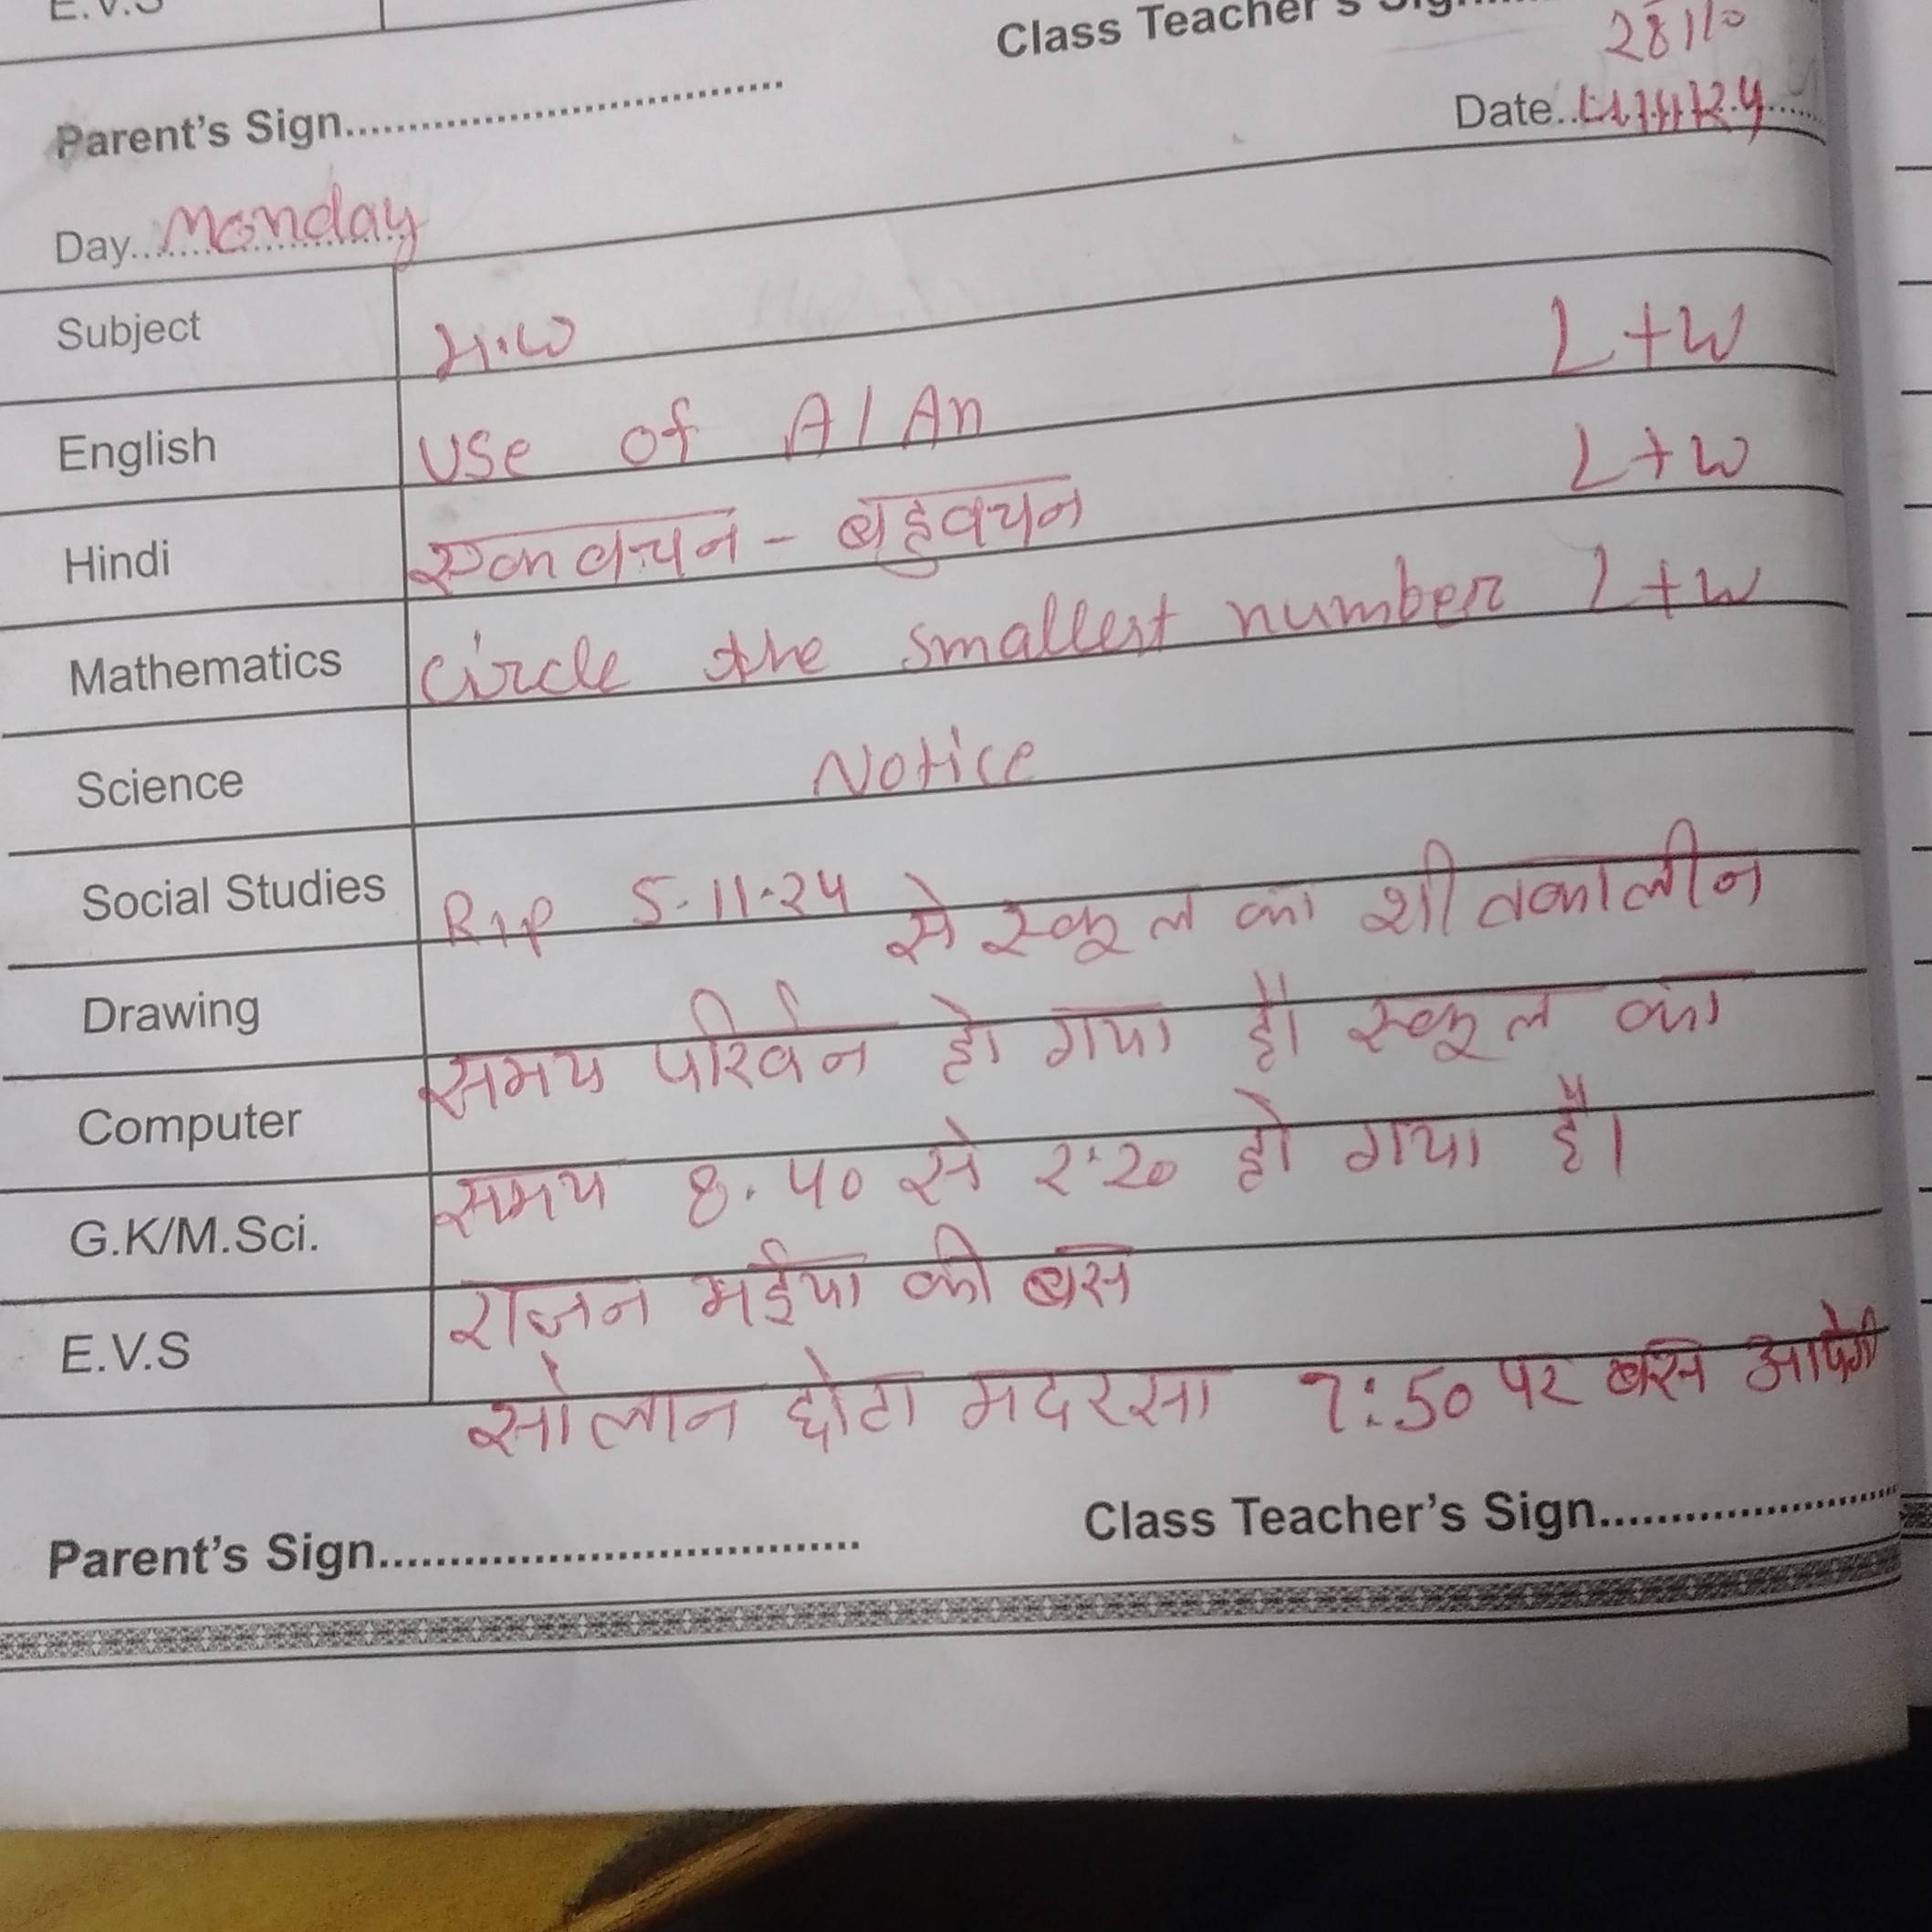 E.V.S
Class Teacher's Sign
28/10
Parent's Sign
Date 4/11/24
Day Monday
Subject H.W
English Use of A/An L+W
Hindi एकवचन - बहुवचन L+W
Mathematics Circle the smallest number L+W
Science Notice
Social Studies R/P 5.11.24 से स्कूल का शीतकालीन
Drawing
समय परिर्वन हो गया है। स्कूल का
Computer
समय 8.40 से 2:20 हो गया है।
G.K/M.Sci.
राजन भईया की बस
E.V.S
सोलान छोटा मदरसा 7:50 पर बस आयेगी
Parent's Sign
Class Teacher's Sign